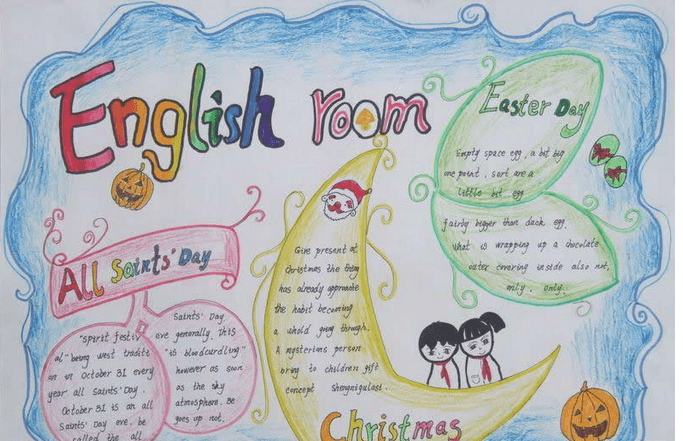 English room
Easter Day
Empty space egg, a bit big
one point, sort are a
little bit egg
fairly bigger than duck egg.
What is wrapping up a chocolate
outer covering inside also not,
only. only.
All Saints' Day
"spirit festiv
al" being west traditi
on in October 31 every
year all Saints' Day.
October 31 is an all
Saints' Day eve. be
called the all
Saints' Day
eve generally. This
"is bloodcurdling"
however as soon
as the sky
atmosphere. Be
goes up not.
Give present at
Christmas the thing
has already approxate
the habit becoming
a whold going through.
A mysterims person
bring to children gift
concept Shengnigulast.
Christmas